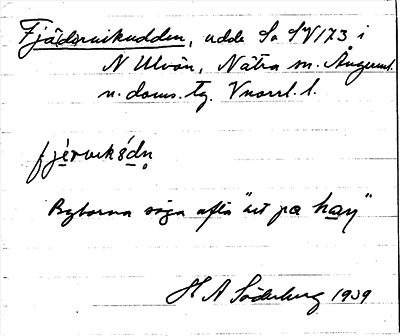 Fjä(de)rvikudden, udde So SV173 i
N Ulvön, Nätra sn. Ångerml.
n. doms. tg. Vnorrl. l.
fjèrvikśdn̥
Byborna säga ofta "ut på
H A Söderberg 1939